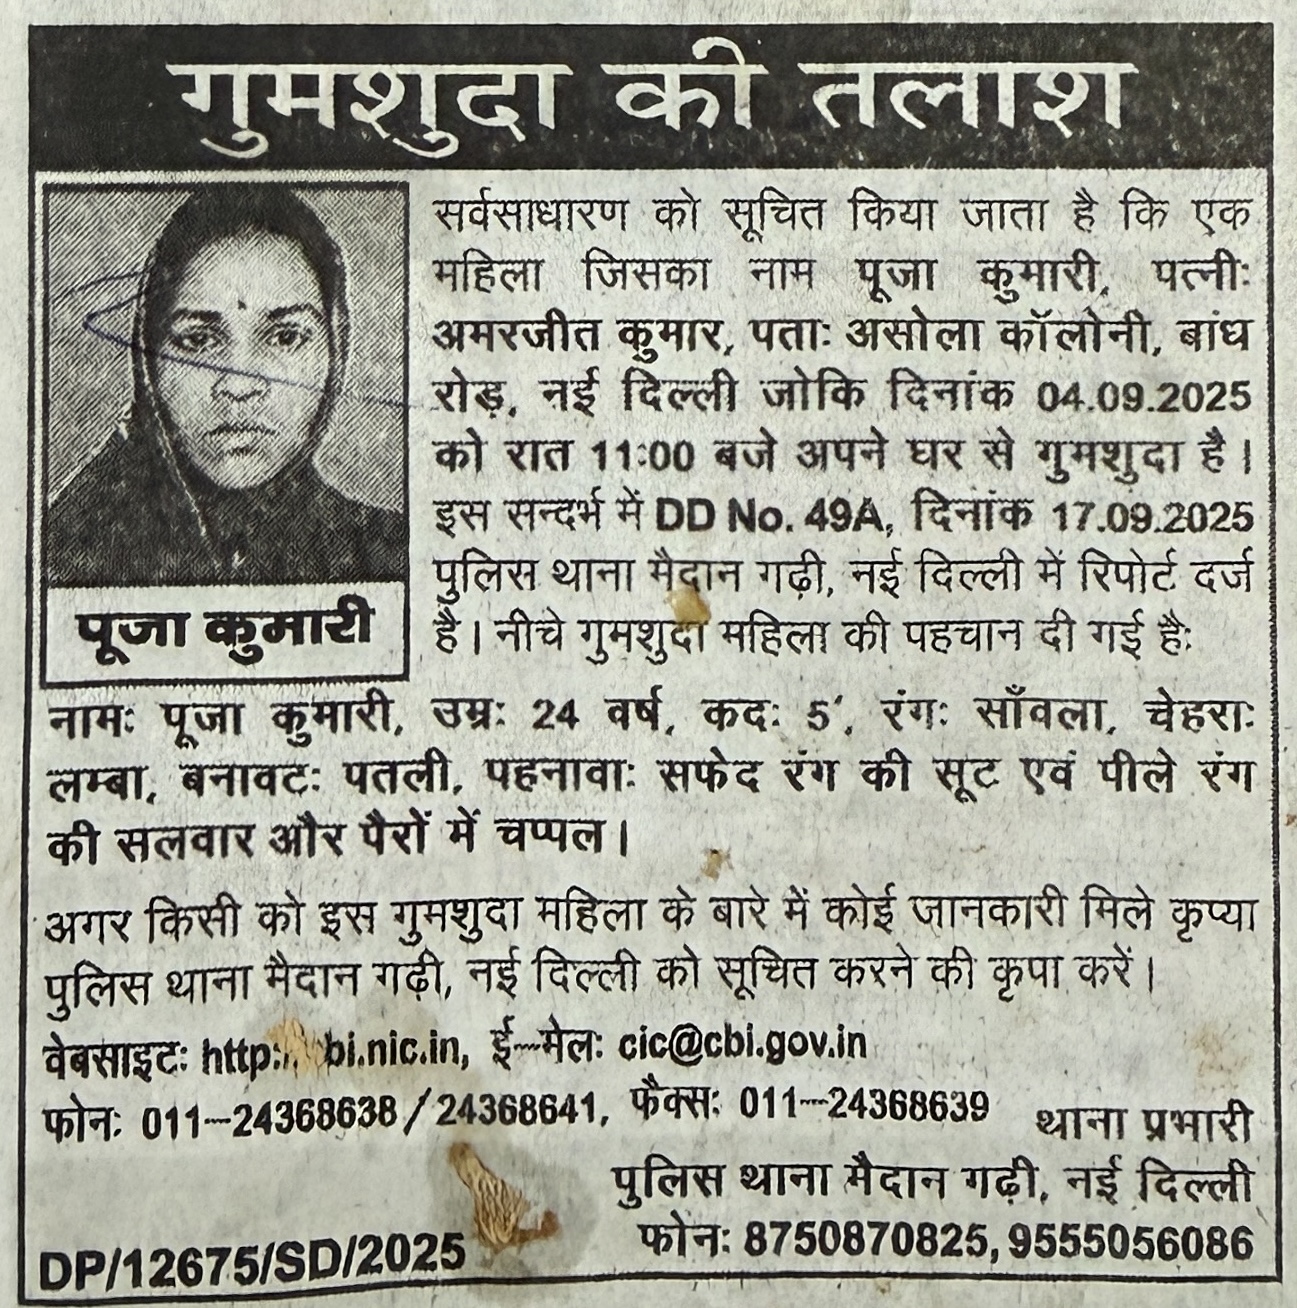 गुमशुदा की तलाश
पूजा कुमारी
सर्वसाधारण को सूचित किया जाता है कि एक
महिला जिसका नाम पूजा कुमारी, पत्नीः
अमरजीत कुमार, पताः असोला कॉलोनी, बांध
रोड़, नई दिल्ली जोकि दिनांक 04.09.2025
को रात 11:00 बजे अपने घर से गुमशुदा है।
इस सन्दर्भ में DD No. 49A, दिनांक 17.09.2025
पुलिस थाना मैदान गढ़ी, नई दिल्ली में रिपोर्ट दर्ज
है। नीचे गुमशुदा महिला की पहचान दी गई हैः
नामः पूजा कुमारी, उम्रः 24 वर्ष, कदः 5', रंगः साँवला, चेहराः
लम्बा, बनावटः पतली, पहनावाः सफेद रंग की सूट एवं पीले रंग
की सलवार और पैरों में चप्पल।
अगर किसी को इस गुमशुदा महिला के बारे में कोई जानकारी मिले कृप्या
पुलिस थाना मैदान गढ़ी, नई दिल्ली को सूचित करने की कृपा करें।
वेबसाइटः ई—मेलः cic@cbi.gov.in
फोनः 011—24368638 / 24368641, फैक्सः 011—24368639
थाना प्रभारी
पुलिस थाना मैदान गढ़ी, नई दिल्ली
फोनः 8750870825, 9555056086
DP/12675/SD/2025